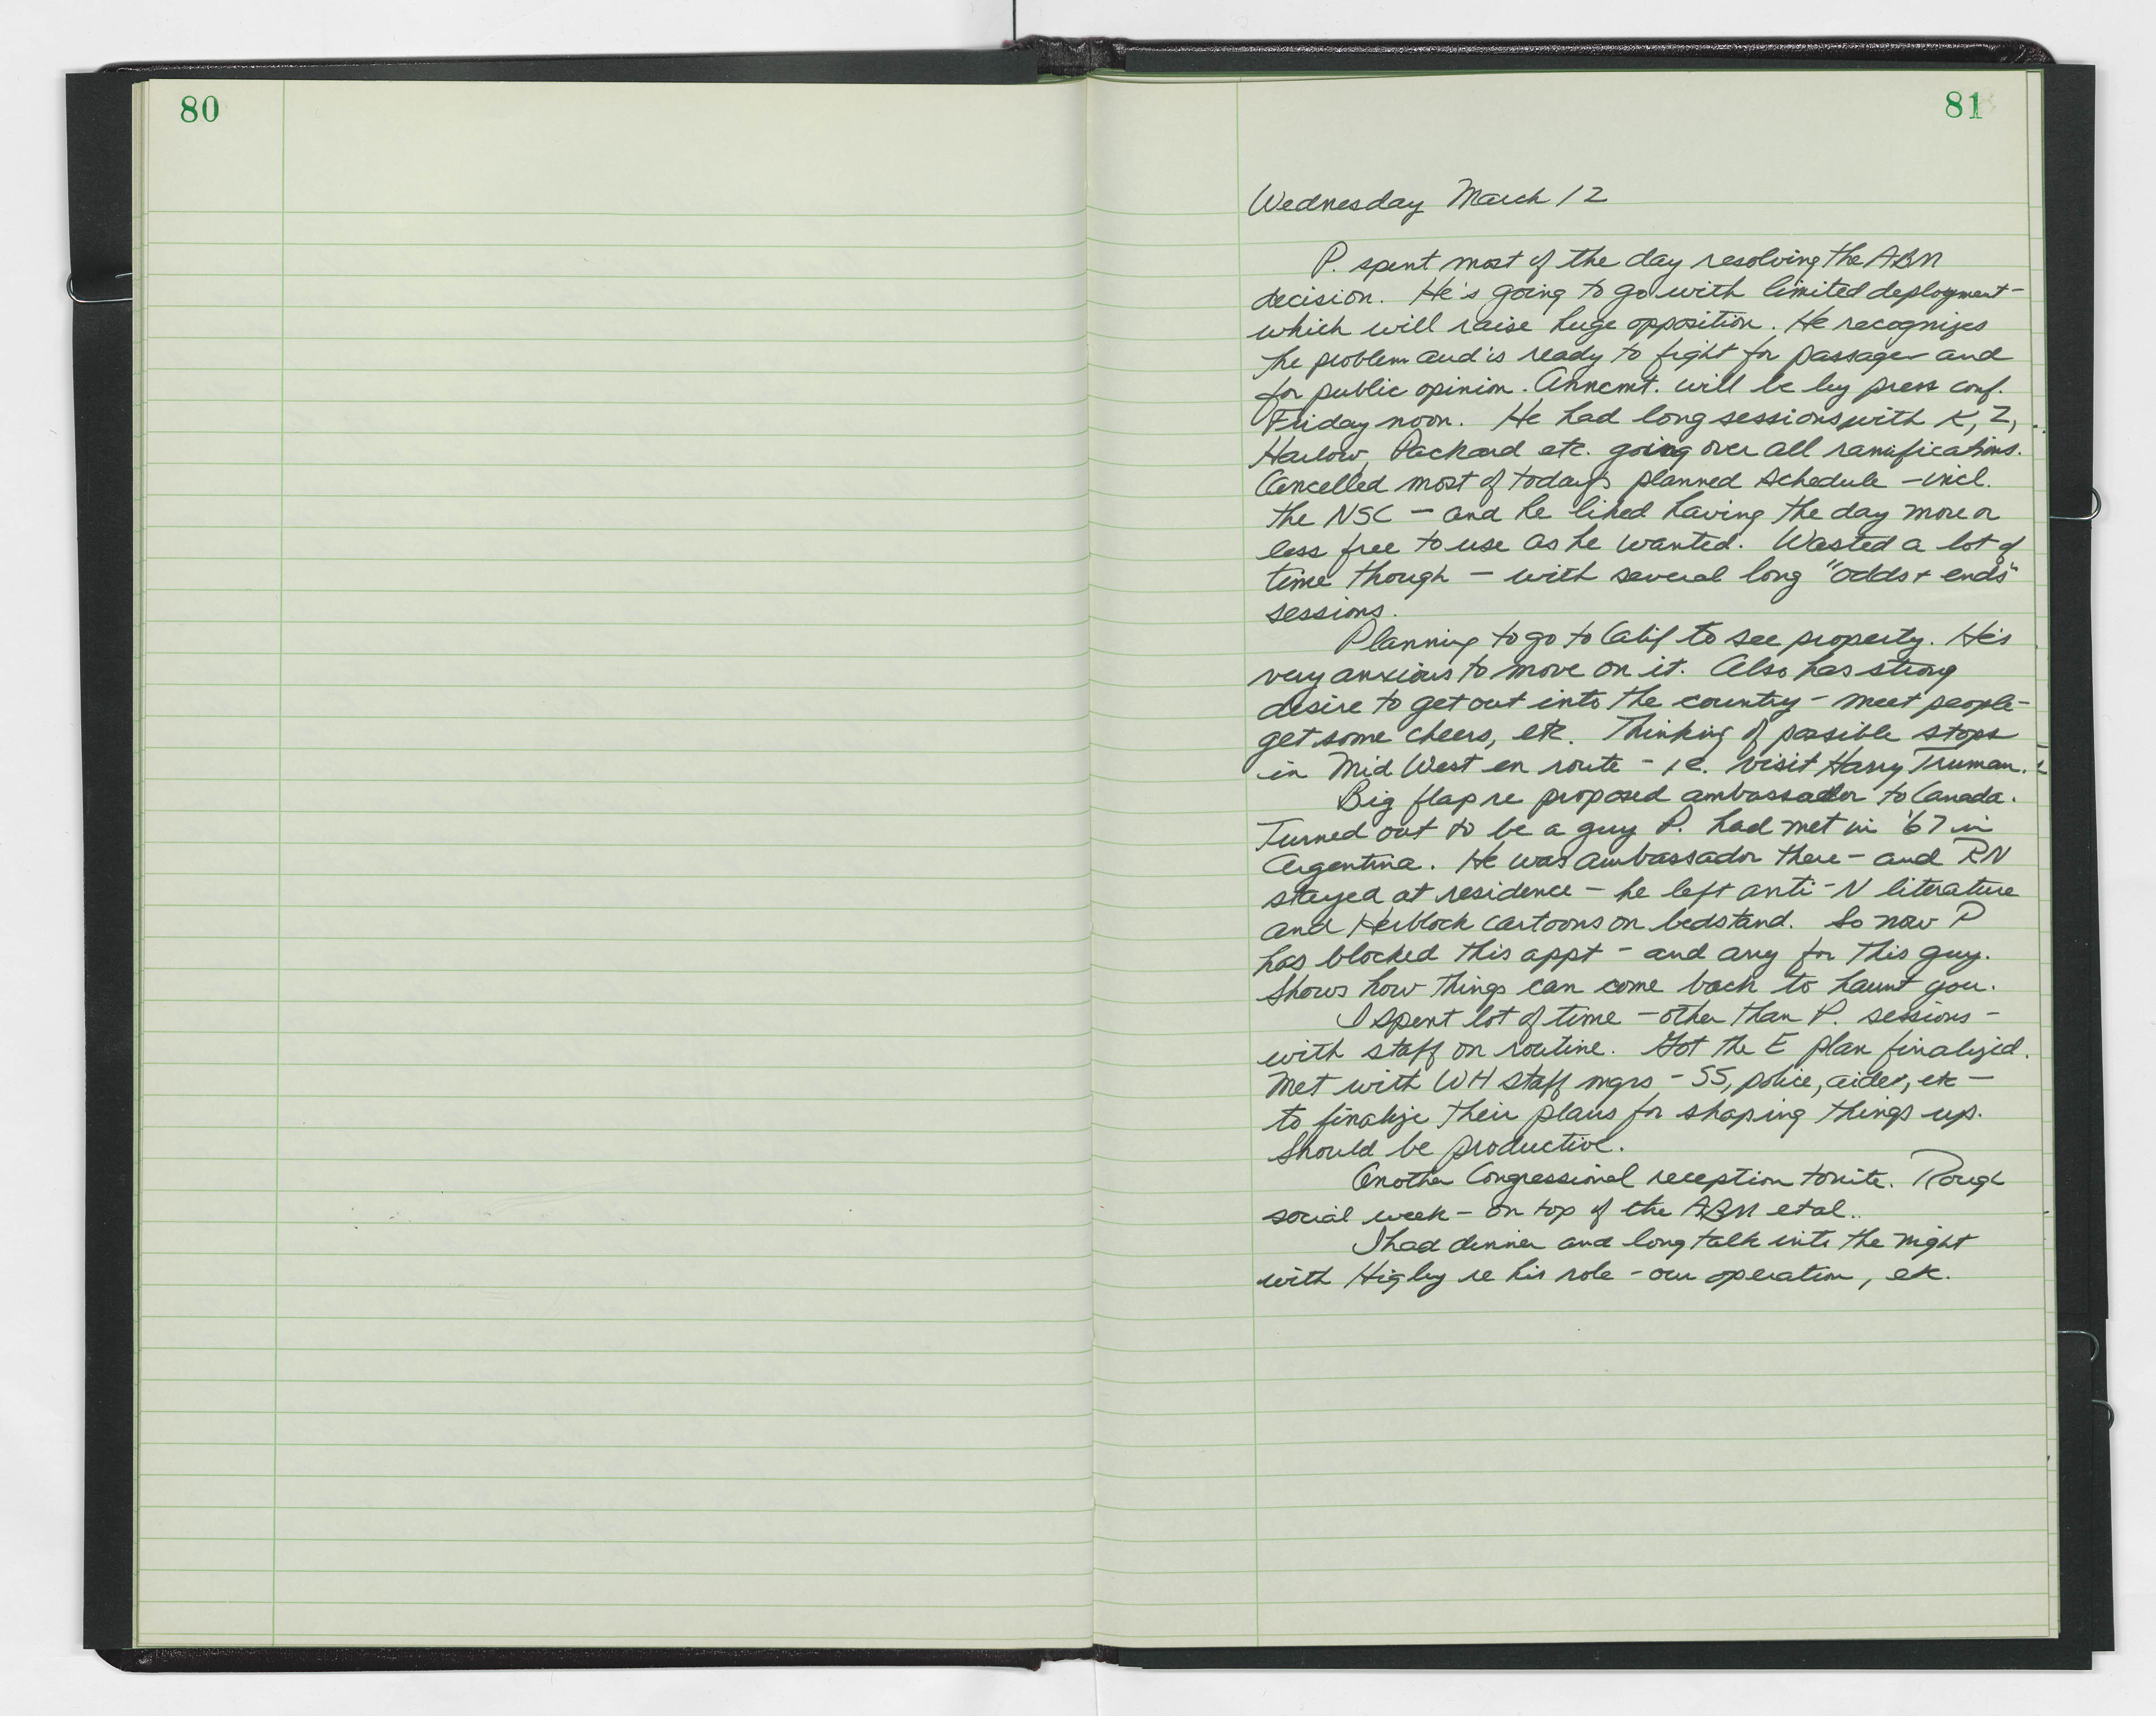 80
81
Wednesday March 12
P. spent most of the day resolving the ABM
decision. He's going to go with limited deployment -
which will raise huge opposition. He recognizes
the problem and is ready to fight for passage - and
for public opinion. Anncmt. will be by press conf.
Friday noon. He had long sessions with K, Z,
Harlow, Packard etc. going over all ramifications.
Cancelled most of today's planned schedule - incl.
the NSC - and he liked having the day more or
less free to use as he wanted. Wasted a lot of
time though - with several long "odds + ends"
sessions.
Planning to go to Calif to see property. He's
very anxious to move on it. Also has strong
desire to get out into the country - meet people -
get some cheers, etc. Thinking of possible stops
in Mid West en route - i.e. visit Harry Truman.
Big flap re proposed ambassador to Canada.
Turned out to be a guy P. had met in '67 in
Argentina. He was ambassador there - and RN
stayed at residence - he left anti-N literature
and Herblock cartoons on bedstand. So now P
has blocked this appt - and any for this guy.
Shows how things can come back to haunt you.
I spent lot of time - other than P. sessions -
with staff on routine. Got the E plan finalized.
Met with WH staff mgrs - SS, police, aides, etc -
to finalize their plans for shaping things up.
Should be productive.
Another Congressional reception tonite. Rough
social week - on top of the ABM et al..
I had dinner and long talk into the night
with Higby re his role - our operation, etc.